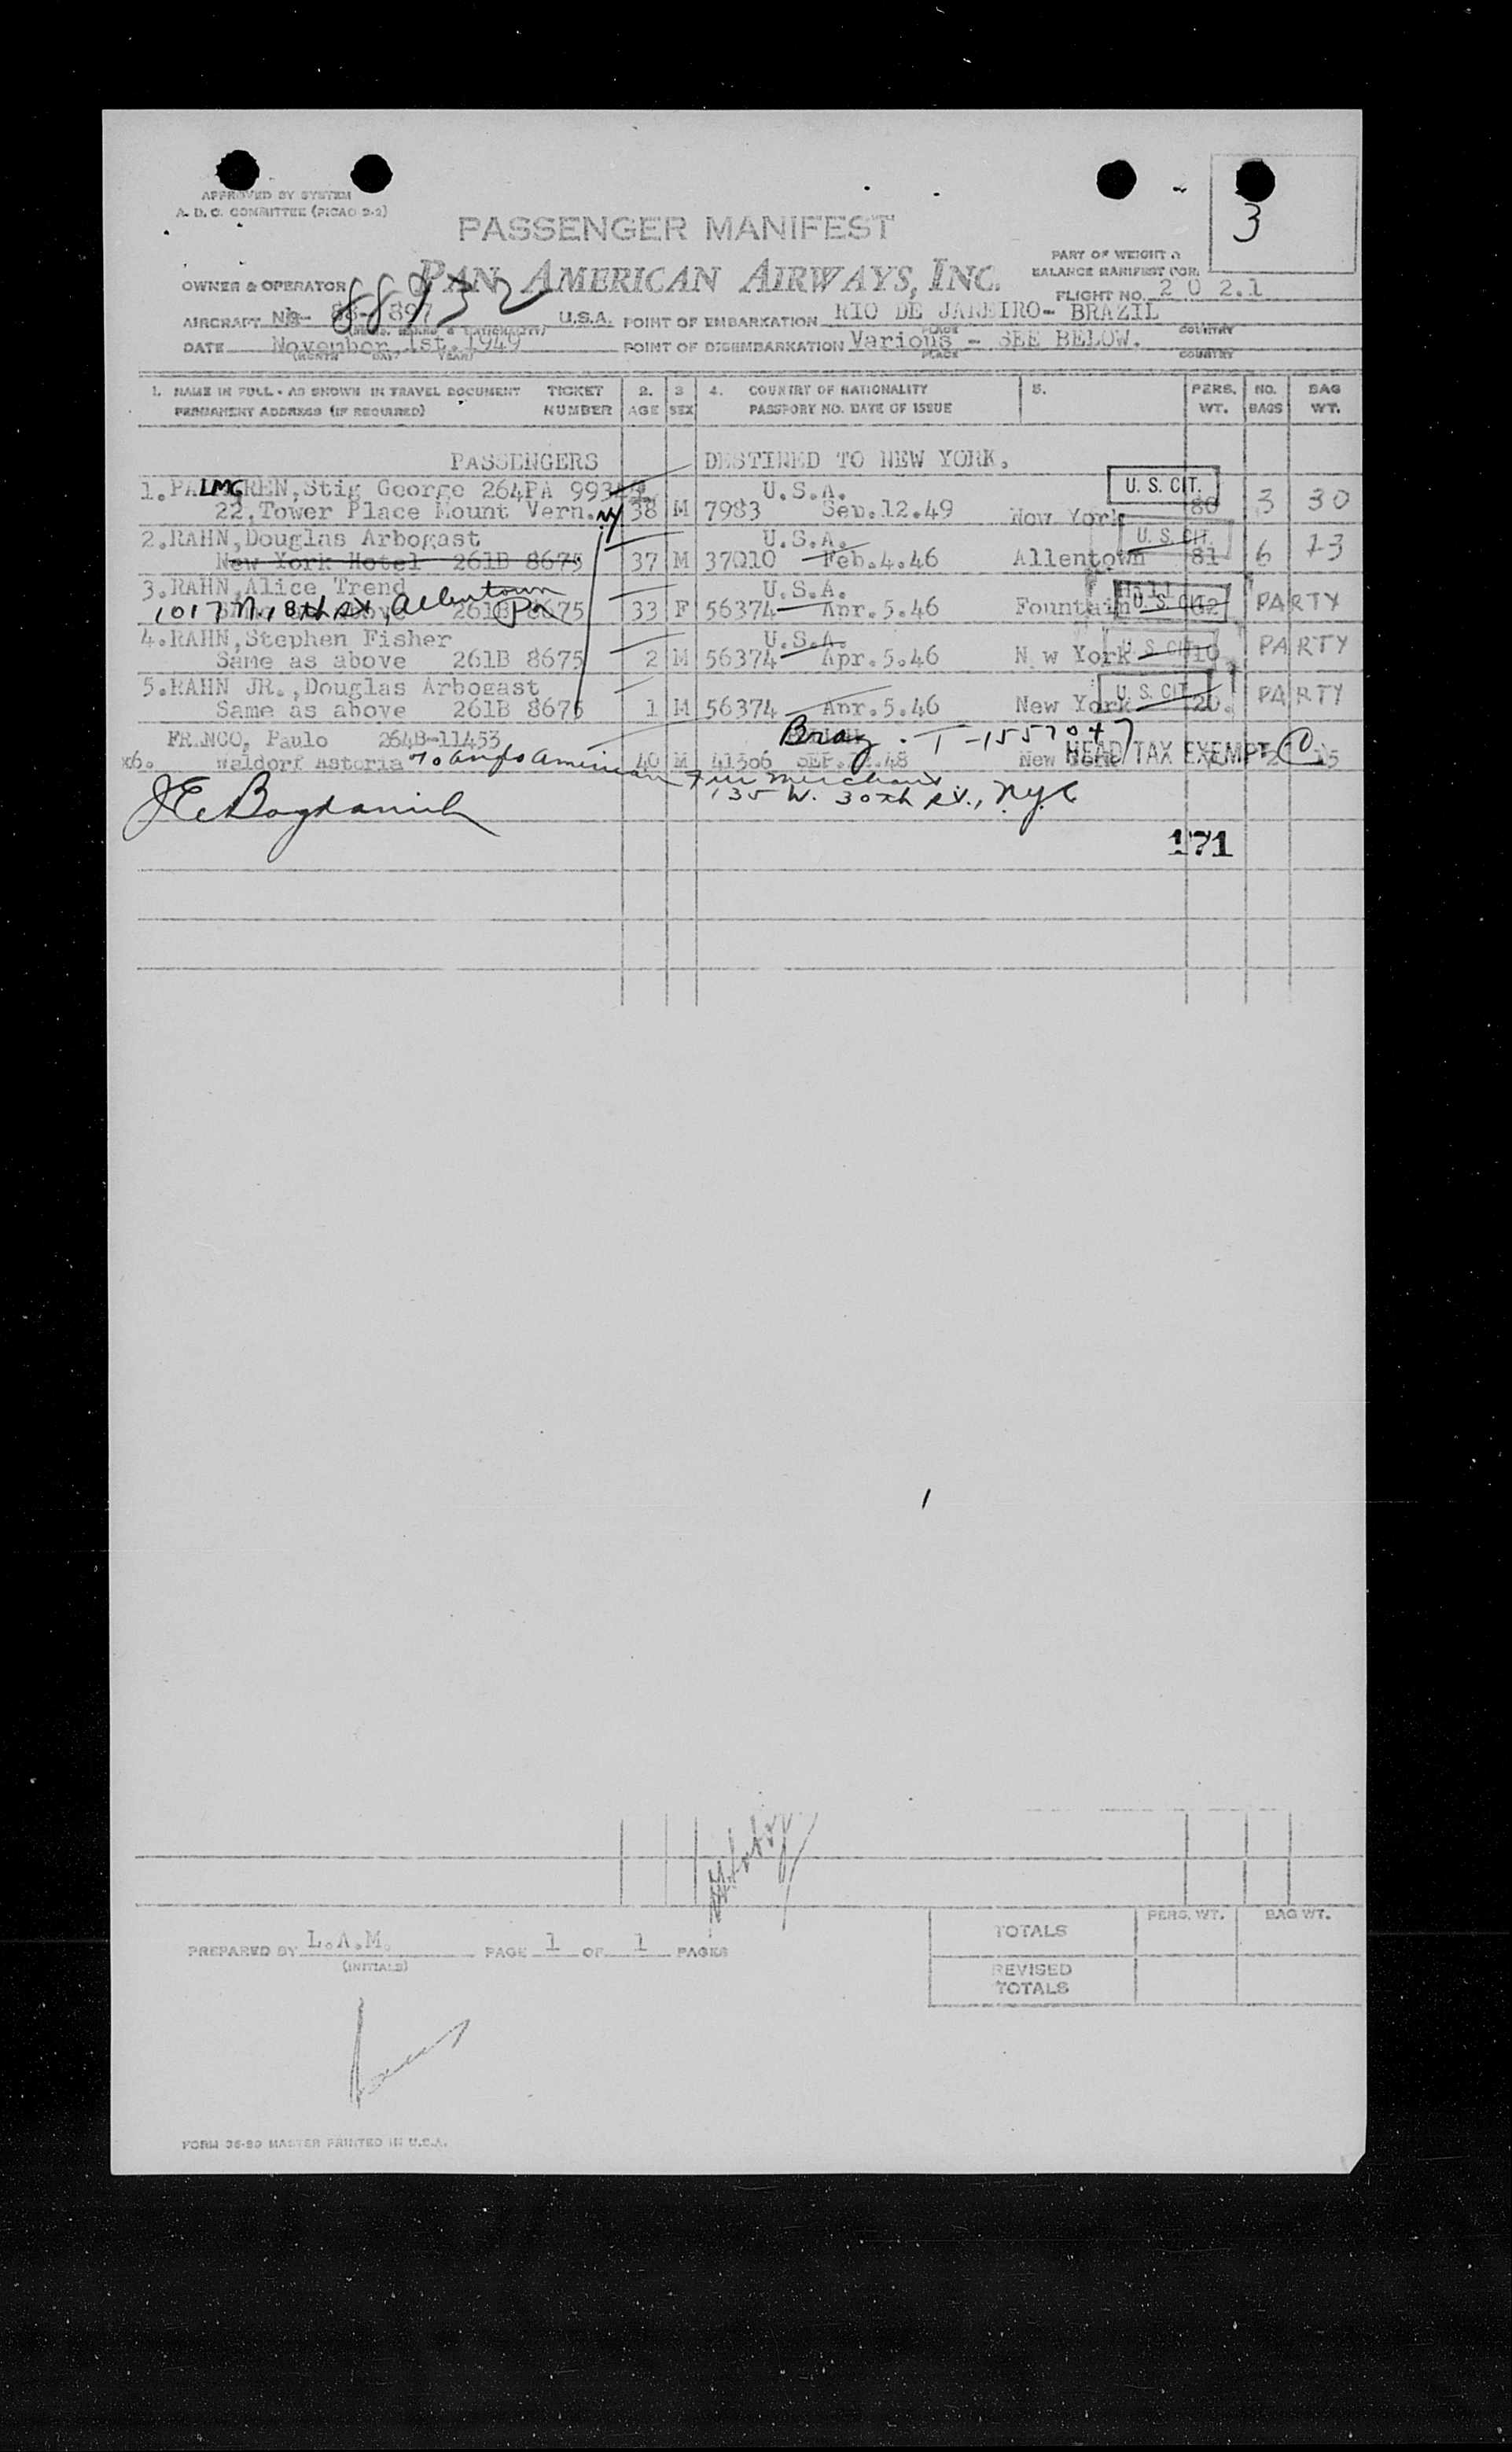 APPROVED BY SYSTEM
A. D. C. COMMITTEE (PICAO 2-2)
3
PASSENGER MANIFEST
PART OF WEIGHT &
BALANCE MANIFEST FOR
OWNER & OPERATOR PAN AMERICAN AIRWAYS, INC.
FLIGHT NO. 2 0 2.1
AIRCRAFT U.S.A. POINT OF EMBARKATION RIO DE JANEIRO- BRAZIL
PLACE COUNTRY
DATE November 1st. 1949 POINT OF DISEMBARKATION Various - SEE BELOW.
(MONTH DAY YEAR) PLACE COUNTRY
1. NAME IN FULL - AS SHOWN IN TRAVEL DOCUMENT TICKET 2. 3 4. COUNTRY OF NATIONALITY 5. PERS. NO. BAG
PERMANENT ADDRESS (IF REQUIRED) NUMBER AGE SEX PASSPORT NO. DATE OF ISSUE WT. BAGS WT.
PASSENGERS DESTINED TO NEW YORK.
1. PALMGREN, Stig George 264PA U.S.A. U. S. CIT.
22, Tower Place Mount Vern. NY 38 M 7983 Sep.12.49 New York 80 3 30
2. RAHN, Douglas Arbogast U.S.A. U. S. CIT.
New York Hotel 261B 8675 37 M 37010 Feb.4.46 Allentown 81 6 73
3. RAHN, Alice Trend U.S.A. Hill
1017 N. 18th St, Allentown Pa 261B 8675 33 F 56374 Apr.5.46 Fountain U. S. CIT. PARTY
4. RAHN, Stephen Fisher U.S.A. U. S. CIT.
Same as above 261B 8675 2 M 56374 Apr.5.46 N w York 10 PARTY
5. RAHN JR., Douglas Arbogast U. S. CIT.
Same as above 261B 8675 1 M 56374 Apr.5.46 New York 20. PARTY
FRANCO, Paulo 264B-11453 Braz. T-1557047
x6. Waldorf Astoria 40 M 41306 New HEAD TAX EXEMPT C
% Anglo American Fur Merchant
135 W. 30th St., NYC
171
PREPARED BY L.A.M. PAGE 1 OF 1 PAGES
(INITIALS)
PERS. WT. BAG WT.
TOTALS
REVISED
TOTALS
FORM 36-80 MASTER PRINTED IN U.S.A.